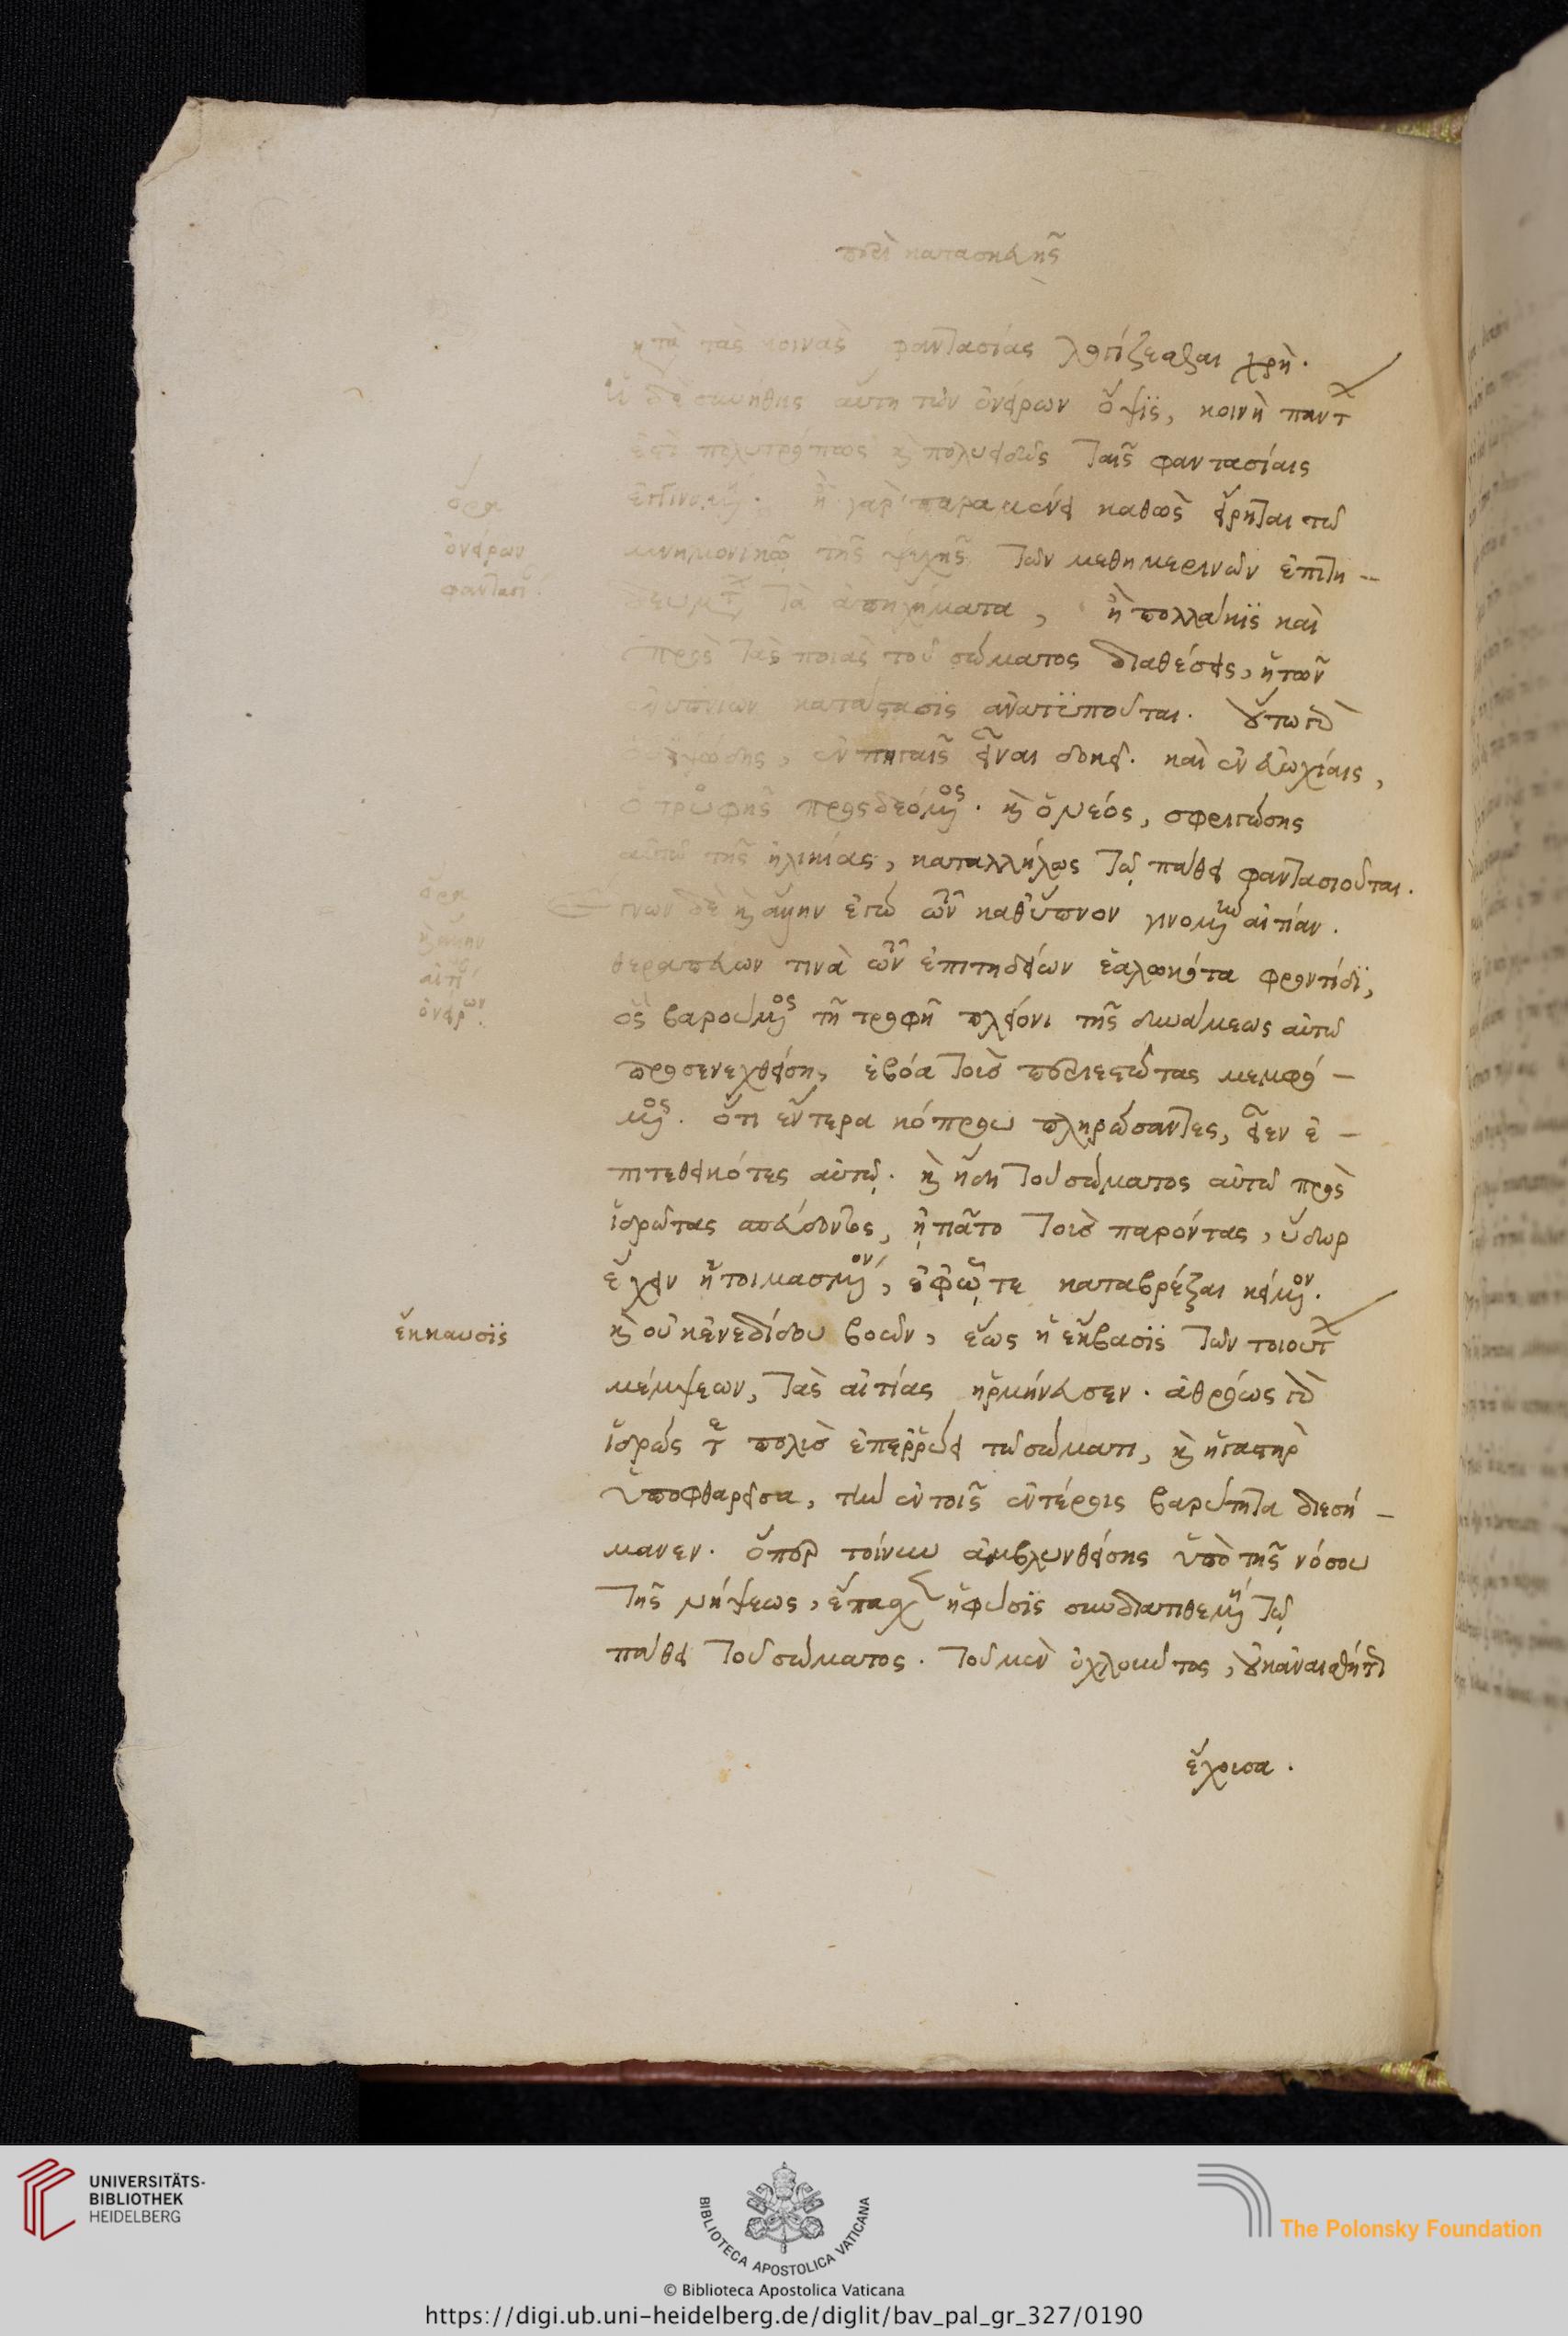 περὶ κατασκευῆς
κατὰ τὰς κοινὰς φαντασίας λογίζεσθαι χρή.
ἡ δὲ συνήθης αὕτη τῶν ὀνείρων ὄψις, κοινὴ πάντων
πολυτρόπως καὶ πολυειδῶς ταῖς φαντασίαις
ὅρα
ἢ γὰρ παραμένει καθὼς εἴρηται τῷ
ὀνείρων
μνημονικῷ τῆς ψυχῆς τῶν μεθημερινῶν ἐπιτη-
φαντασι
δευμάτων τὰ ἀπηχήματα, ἢ πολλάκις καὶ
πρὸς τὰς ποιὰς τοῦ σώματος διαθέσεις, ἡ τῶν
ἐνυπνίων κατάστασις ἀνατυποῦται. οὕτω γὰρ
ὁ διψώδης, ἐν πηγαῖς εἶναι δοκεῖ. καὶ ἐν εὐωχίαις,
ὁ τροφῆς προσδεόμενος. καὶ ὁ νέος, σφριγώσης
αὐτῷ τῆς ἡλικίας, καταλλήλως τῷ πάθει φαντασιοῦται.
ὅρα
ἔγνων δὲ καὶ ἄλλην ἐγὼ τῶν καθ' ὕπνον γινομένων αἰτίαν.
καὶ ἄλλην
θεραπεύων τινὰ τῶν ἐπιτηδείων ἑαλωκότα φρενίτιδι,
αἰτί
ὃς βαρούμενος τῇ τροφῇ πλείονι τῆς δυνάμεως αὐτῷ
ὀνείρων.
προσενεχθείσῃ, ἐβόα τοὺς περιεστῶτας μεμφό-
μενος. ὅτι ἔντερα κόπρου πληρώσαντες, εἶεν ἐ-
πιτεθεικότες αὐτῷ. καὶ ἤδη τοῦ σώματος αὐτῷ πρὸς
ἱδρῶτας σπεύδοντος, ᾐτιᾶτο τοὺς παρόντας, ὕδωρ
ἔχειν ἡτοιμασμένον, ἐφ' ᾧ τε καταβρέξαι κείμενον.
καὶ οὐκ ἐνεδίδου βοῶν, ἕως ἡ ἔκβασις τῶν τοιούτων
ἔκκαυσις
μέμψεων, τὰς αἰτίας ἡρμήνευσεν. ἀθρόως γὰρ
ἱδρώς τε πολὺς ἐπερρύει τῷ σώματι, καὶ ἡ γαστὴρ
ὑποφθαρεῖσα, τὴν ἐν τοῖς ἐντέροις βαρύτητα διεσή-
μανεν. ὅπερ τοίνυν ἀμβλυνθείσης ὑπὸ τῆς νόσου
τῆς νήψεως, ἔπασχεν ἡ φύσις συνδιατιθεμένη τῷ
πάθει τοῦ σώματος. τοῦ μὲν ὀχλοῦντος, οὐκ ἀναισθήτως
ἔχουσα.
UNIVERSITÄTS-
BIBLIOTHEK
HEIDELBERG
BIBLIOTECA APOSTOLICA VATICANA
The Polonsky Foundation
© Biblioteca Apostolica Vaticana
https://digi.ub.uni-heidelberg.de/diglit/bav_pal_gr_327/0190